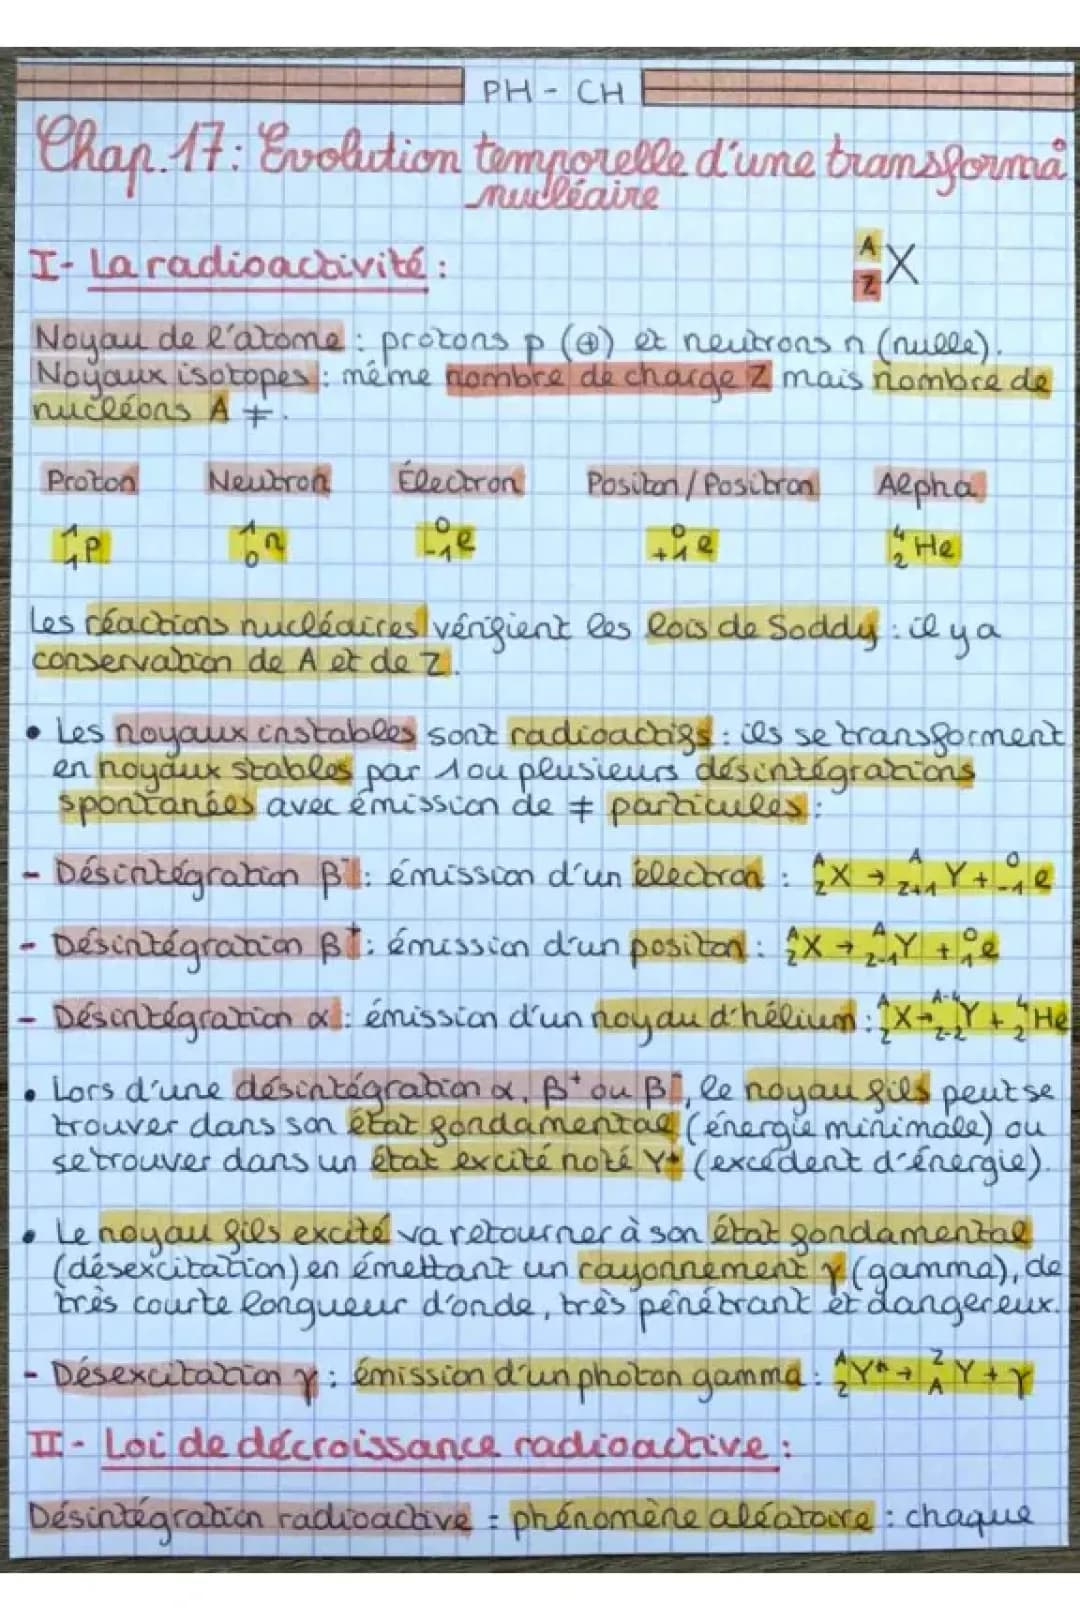 PH - CH
Chap. 17: Evolution temporelle d'une transforma°
nucléaire
I- La radioactivité :
A
Z X
Noyau de l'atome : protons p (⊕) et neutrons n (nulle).
Noyaux isotopes : même nombre de charge Z mais nombre de
nucléons A ≠.
Proton Neutron Électron Positon / Positron Alpha
¹₁p ¹₀n ⁰₋₁e ⁰₊₁e ⁴₂He
Les réactions nucléaires vérifient les lois de Soddy : il y a
conservation de A et de Z.
• Les noyaux instables sont radioactifs : ils se transforment
en noyaux stables par 1 ou plusieurs désintégrations
spontanées avec émission de ≠ particules :
- Désintégration β⁻ : émission d'un électron : ᴬzX → ᴬz+1Y + ⁰₋₁e
- Désintégration β⁺ : émission d'un positon : ᴬzX → ᴬz-1Y + ⁰₁e
- Désintégration α : émission d'un noyau d'hélium : ᴬzX → ᴬ⁻⁴z-2Y + ⁴₂He
• Lors d'une désintégration α, β⁺ ou β⁻, le noyau fils peut se
trouver dans son état fondamental (énergie minimale) ou
se trouver dans un état excité noté Y* (excédent d'énergie).
• Le noyau fils excité va retourner à son état fondamental
(désexcitation) en émettant un rayonnement γ (gamma), de
très courte longueur d'onde, très pénétrant et dangereux.
- Désexcitation γ : émission d'un photon gamma : ᴬzY* → ᶻAY + γ
II - Loi de décroissance radioactive :
Désintégration radioactive = phénomène aléatoire : chaque